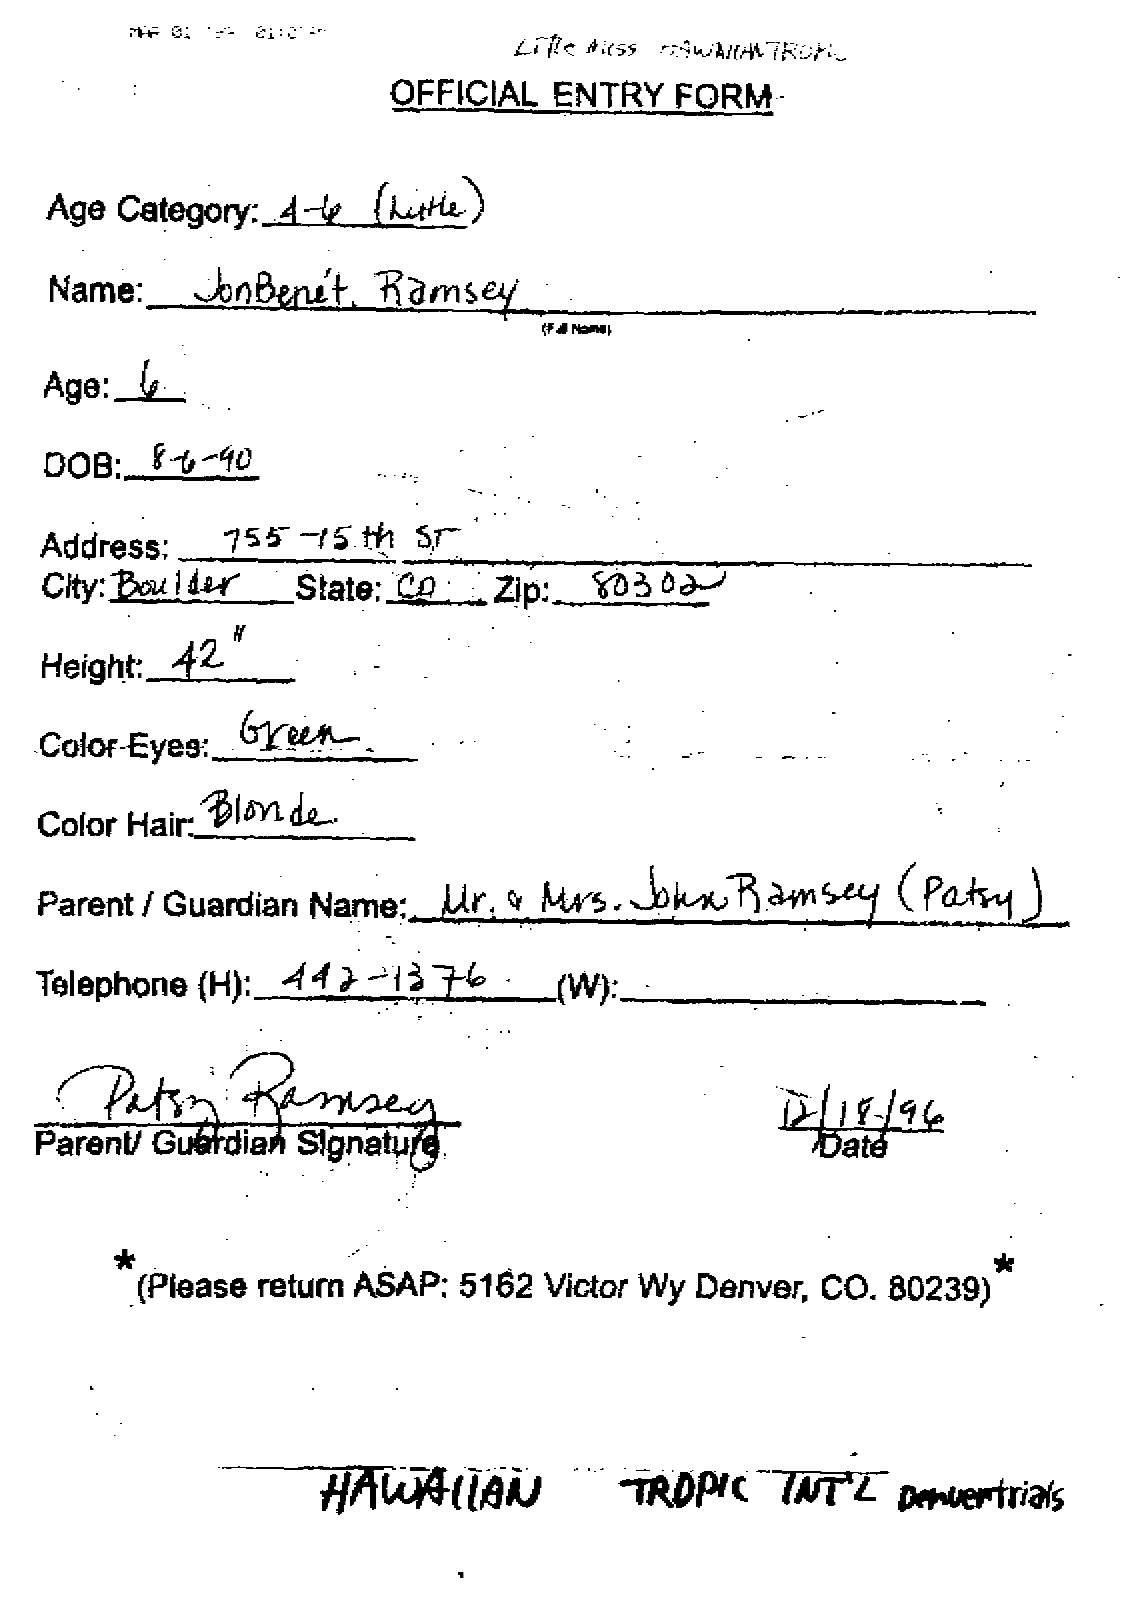 MAR 01
Little Miss HAWAIIAN TROPIC
OFFICIAL ENTRY FORM
Age Category: 4-6 (Little)
Name: JonBenét Ramsey
(Full Name)
Age: 6
DOB: 8-6-90
Address: 755-15th St
City: Boulder State: CO Zip: 80302
Height: 42"
Color Eyes: Green
Color Hair: Blonde
Parent / Guardian Name: Mr. & Mrs. John Ramsey (Patsy)
Telephone (H): 442-1376 (W):
Patsy Ramsey 12/18/96
Parent/ Guardian Signature Date
*(Please return ASAP: 5162 Victor Wy Denver, CO. 80239)*
HAWAIIAN TROPIC INT'L Denver trials